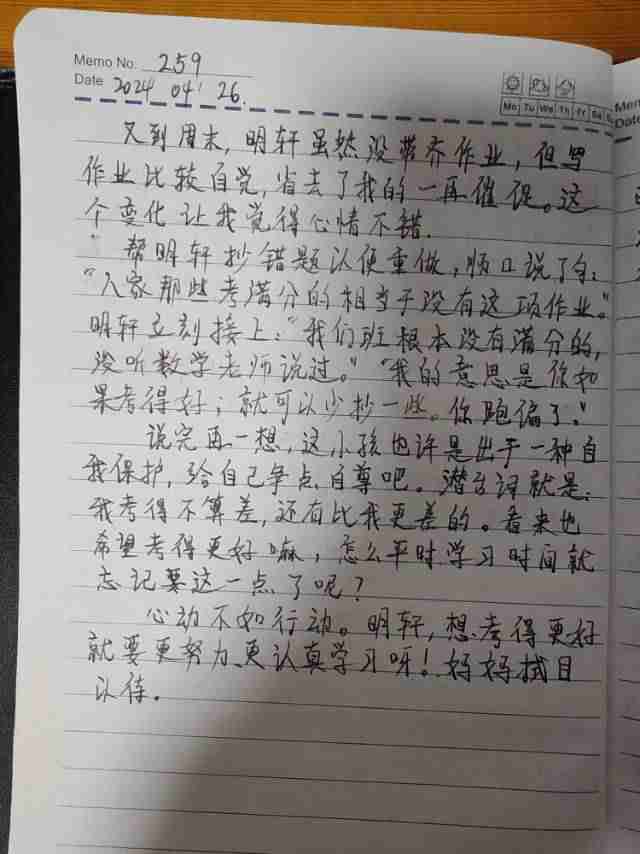 Memo No. 259
Date 2024 04 26.
Mo Tu We Th Fr Sa
又到周末，明轩虽然没带齐作业，但写
作业比较自觉，省去了我的一再催促。这
个变化让我觉得心情不错.
帮明轩抄错题以便重做，顺口说了句：
“人家那些考满分的相当于没有这项作业。”
明轩立刻接上：“我们班根本没有满分的，
没听数学老师说过。”“我的意思是你如
果考得好；就可以少抄一些。你跑偏了.”
说完再一想，这小孩也许是出于一种自
我保护，给自己争点自尊吧。潜台词就是：
我考得不算差，还有比我更差的。看来也
希望考得更好嘛，怎么平时学习时间就
忘记要这一点了呢？
心动不如行动。明轩，想考得更好
就要更努力、更认真学习呀！妈妈拭目
以待.
Mem
Date